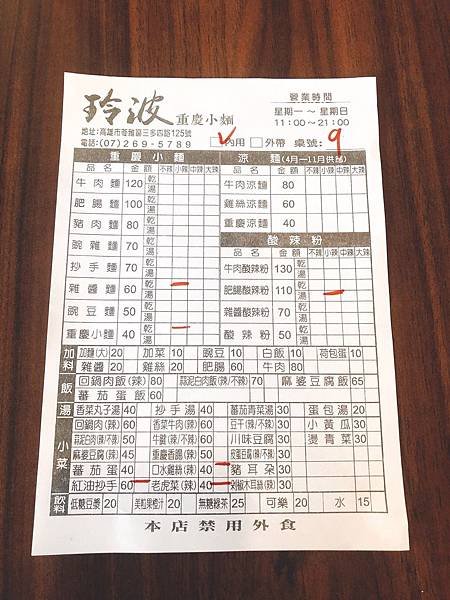 玲波重慶小麵
營業時間
星期一～星期日
11:00～21:00
地址:高雄市苓雅區三多四路125號
電話:(07)269-5789 V 內用 外帶 桌號: 9
重慶小麵
品名 不辣 小辣 中辣 大辣
牛肉麵 120 乾 湯
肥腸麵 100 乾 湯
豬肉麵 80 乾 湯
豌雜麵 70 乾 湯
抄手麵 70 乾 湯
雜醬麵 60 乾 湯
豌豆麵 50 乾 湯
重慶小麵 40 乾 湯
涼麵 (4月—11月供應)
品名 不辣 小辣 中辣 大辣
牛肉涼麵 80
雞絲涼麵 60
重慶涼麵 40
酸辣粉
品名 不辣 小辣 中辣 大辣
牛肉酸辣粉 130 乾 湯
肥腸酸辣粉 110 乾 湯
雜醬酸辣粉 70 乾 湯
酸辣粉 50 乾 湯
加料 加麵(大) 20 加菜 10 豌豆 10 白飯 10 荷包蛋 10
雜醬 20 雞絲 20 肥腸 60 牛肉 80
飯 回鍋肉飯(辣) 80 蒜泥白肉飯(辣/不辣) 70 麻婆豆腐飯 65
蕃茄蛋飯 60
湯 香菜丸子湯 40 抄手湯 40 蕃茄青菜湯 30 蛋包湯 20
小菜 回鍋肉(辣) 60 香菜牛肉(辣) 60 豆干(辣/不辣) 30 小黃瓜 30
蒜泥白肉(辣/不辣) 50 牛腱(辣/不辣) 60 川味豆腐 30 燙青菜 30
麻婆豆腐(辣) 45 重慶香腸(辣) 50 皮蛋豆腐(辣/不辣) 30
蕃茄蛋 40 口水雞絲(辣) 40 豬耳朵 30
紅油抄手 60 老虎菜(辣) 40 剁椒木耳絲(辣) 30
飲料 低糖豆漿 20 美粒果橙汁 20 無糖綠茶 25 可樂 20 水 15
本店禁用外食